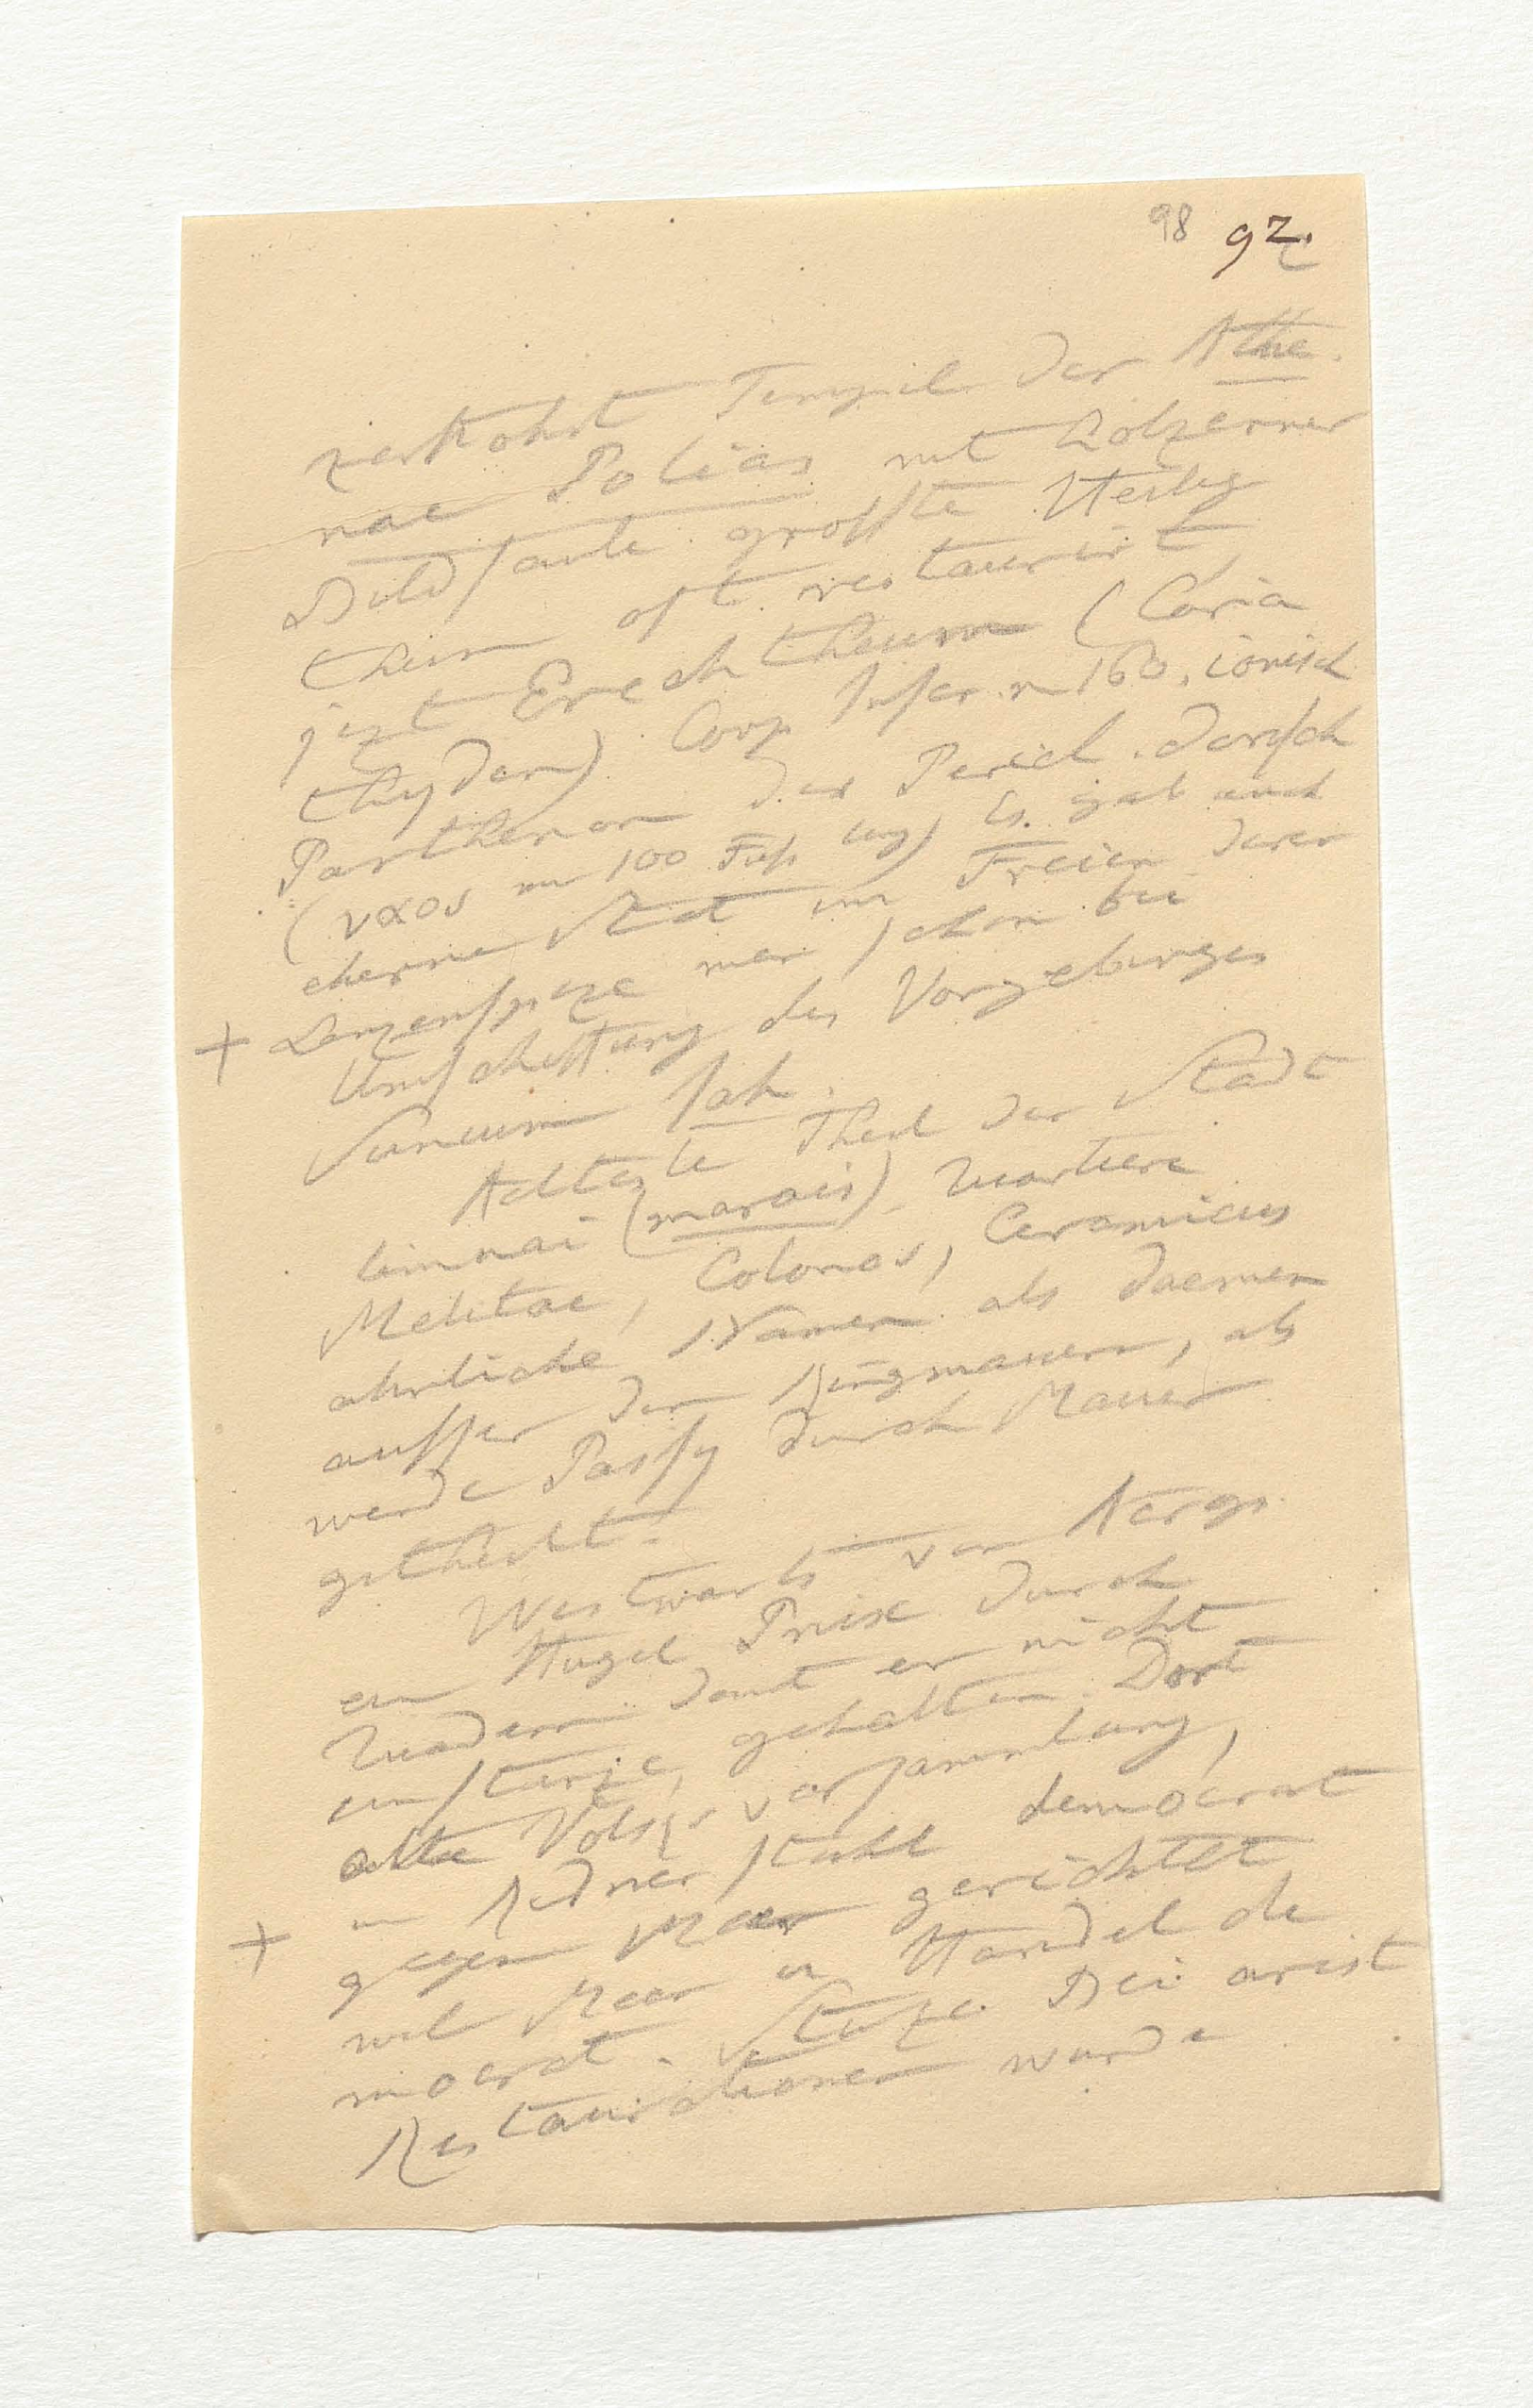 98 92.
zerstohrt Tempel der Athe
nae Polias mit hölzerner
Bildsäule. grosste Heilig
thum oft restaurirt,
jezt Erechtheum (Caria
thyden) Corp Inscr. n 160. ionisch
Parthenon des Pericl. dorisch
(ναος n 100 Fuß lang) Es. gab auch
eherne Stat im Freien deren
+ Lanzenspize man schon bei
Umschiffung des Vorgebirges
Sunium sah.
Aelteste Theil der Stadt
Limnai (marais). Quartiere
Melitae, Colonos, Ceramicus
ähnliche Namen als Daemen
ausser den Ringmauern, als
werde Passy durch Mauer
getheilt.
Westwarts von Aerop
ein Hügel Pnix durch
Quadern damit er nicht
einstürze, gehalten. Dort
alte Volksversammlung,
Rednerstuhl democrat
+ gegen Meer gerichtet,
weil Meer u Handel de
mocrat. Stüze. Bei arist
Restaurationen wurde